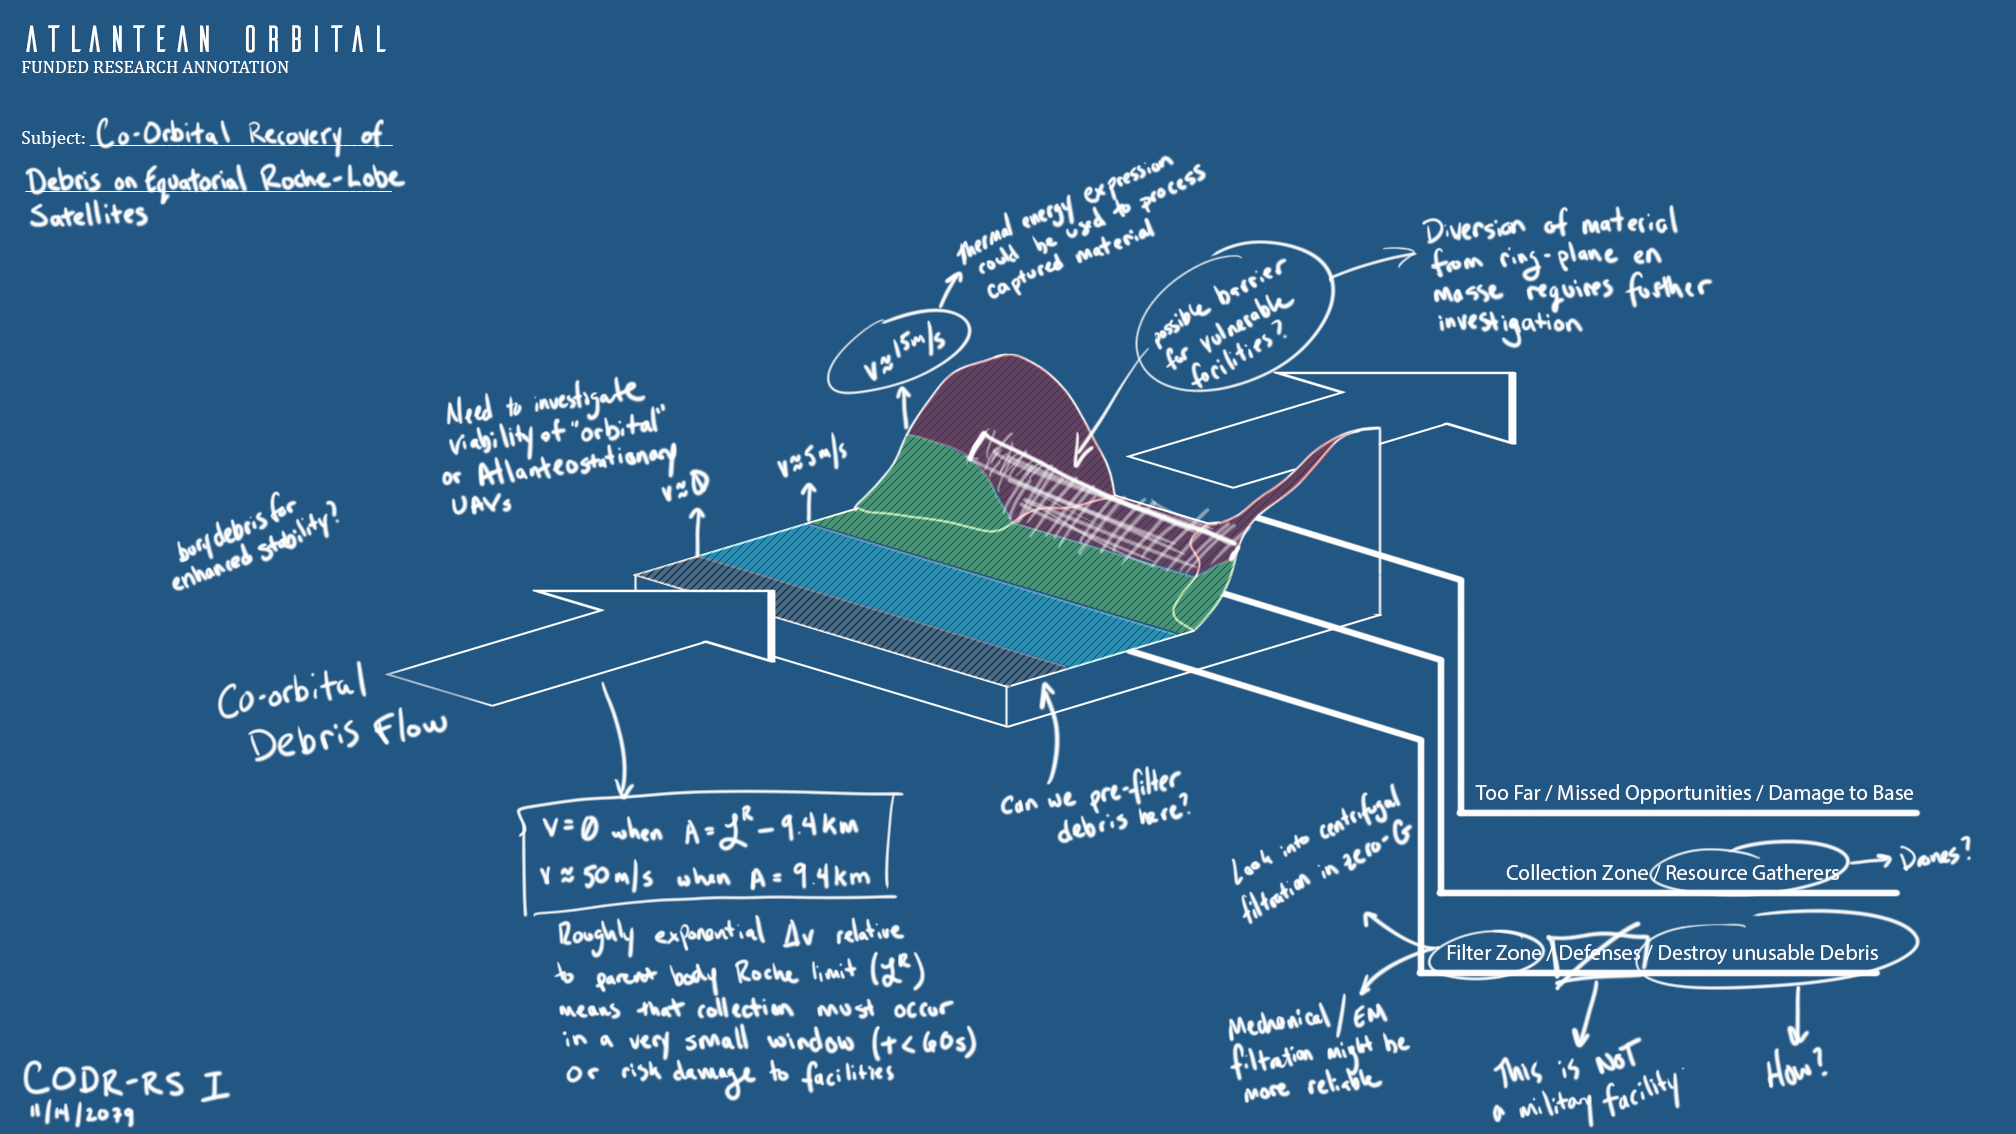 ATLANTEAN ORBITAL
FUNDED RESEARCH ANNOTATION
Subject: Co-Orbital Recovery of
Debris on Equatorial Roche-Lobe
Satellites
Thermal energy expression
could be used to process
captured material
v≈15m/s
possible barrier
for vulnerable
facilities?
Diversion of material
from ring-plane en
masse requires further
investigation
Need to investigate
viability of "orbital"
or Atlanteostationary
UAVs
v≈0
v≈5m/s
bury debris for
enhanced stability?
Co-orbital
Debris Flow
V=0 when A=ℒᴿ-9.4km
V≈50m/s when A=9.4km
Roughly exponential Δv relative
to parent body Roche limit (ℒᴿ)
means that collection must occur
in a very small window (t<60s)
or risk damage to facilities
Can we pre-filter
debris here?
Look into centrifugal
filtration in zero-G
Too Far / Missed Opportunities / Damage to Base
Collection Zone / Resource Gatherers
Drones?
Filter Zone / Defenses / Destroy unusable Debris
Mechanical/EM
filtration might be
more reliable
This is NOT
a military facility
How?
CODR-RS I
11/14/2079